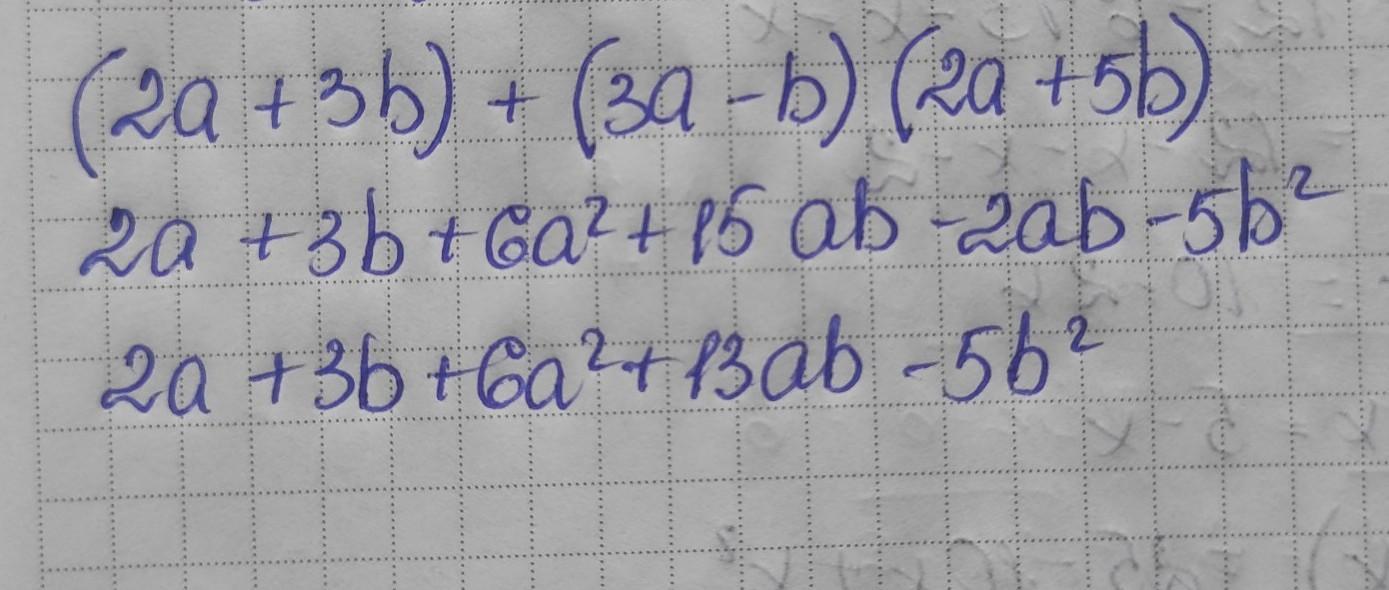 (2a + 3b) + (3a - b) (2a + 5b)
2a + 3b + 6a² + 15 ab - 2ab - 5b²
2a + 3b + 6a² + 13ab - 5b²